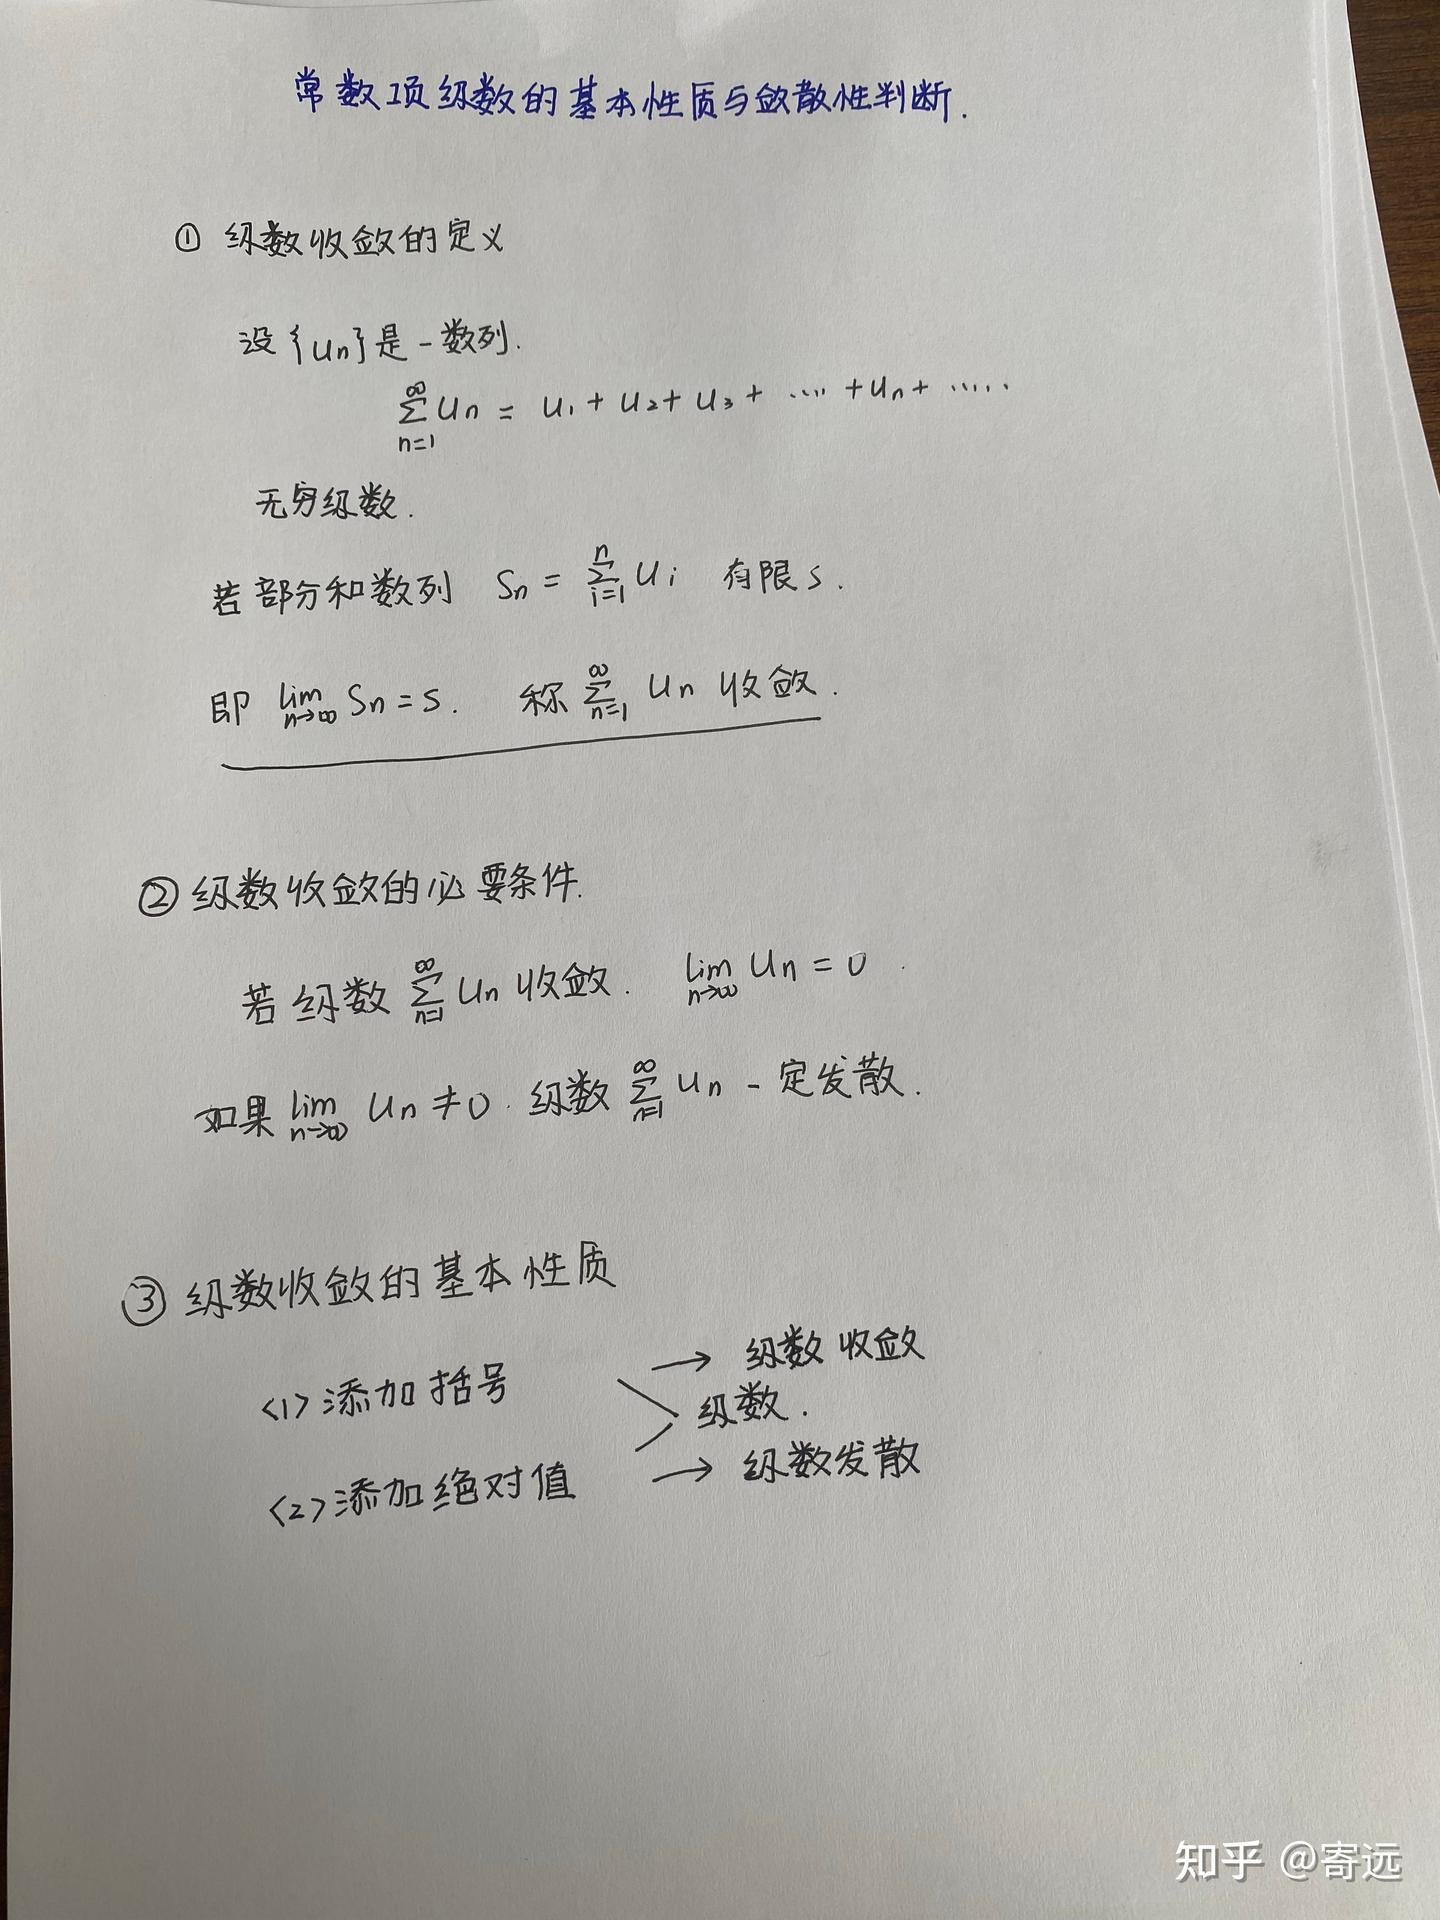 常数项级数的基本性质与敛散性判断.
① 级数收敛的定义
设{un}是一数列.
∞∑n=1 un = u1 + u2 + u3 + ···· + un + ·····
无穷级数.
若部分和数列 Sn = n∑i=1 ui 有限s.
即 lim n→∞ Sn = s. 称 ∞∑n=1 un 收敛.
② 级数收敛的必要条件.
若级数 ∞∑n=1 un 收敛. lim n→∞ un = 0.
如果 lim n→∞ un ≠ 0. 级数 ∞∑n=1 un 一定发散.
③ 级数收敛的基本性质
<1>添加括号 → 级数收敛
级数.
<2>添加绝对值 → 级数发散
知乎 @寄远